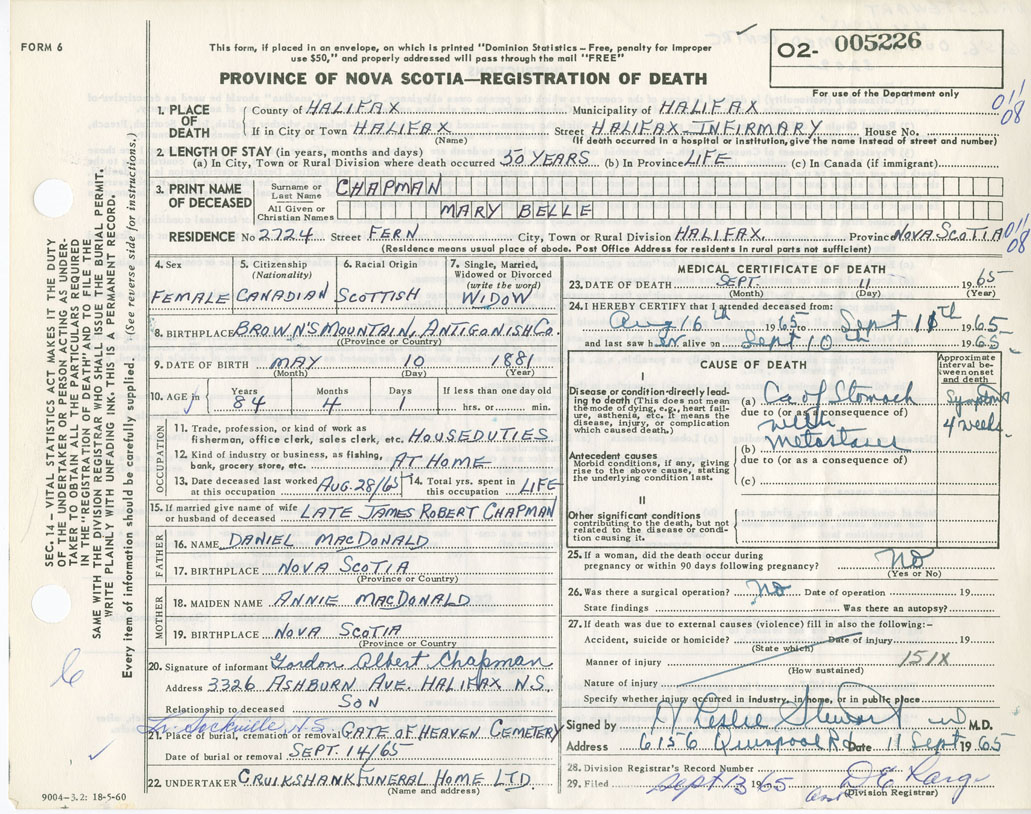 FORM 6
This form, if placed in an envelope, on which is printed "Dominion Statistics—Free, penalty for improper
use $50," and properly addressed will pass through the mail "FREE"
PROVINCE OF NOVA SCOTIA—REGISTRATION OF DEATH
02- 005226
For use of the Department only
SEC. 14 - VITAL STATISTICS ACT MAKES IT THE DUTY
OF THE UNDERTAKER OR PERSON ACTING AS UNDER-
TAKER TO OBTAIN ALL THE PARTICULARS REQUIRED
IN THE "REGISTRATION OF DEATH" AND TO FILE THE
SAME WITH THE DIVISION REGISTRAR WHO SHALL ISSUE THE BURIAL PERMIT.
WRITE PLAINLY WITH UNFADING INK. THIS IS A PERMANENT RECORD.
Every item of information should be carefully supplied. (See reverse side for instructions.)
1. PLACE OF DEATH
County of HALIFAX Municipality of HALIFAX
If in City or Town HALIFAX Street HALIFAX-INFIRMARY House No.
(Name) (If death occurred in a hospital or institution, give the name instead of street and number)
011
08
2. LENGTH OF STAY (in years, months and days)
(a) In City, Town or Rural Division where death occurred 50 YEARS (b) In Province LIFE (c) In Canada (if immigrant)
3. PRINT NAME OF DECEASED
Surname or Last Name CHAPMAN
All Given or Christian Names MARY BELLE
RESIDENCE No 2724 Street FERN City, Town or Rural Division HALIFAX Province NOVA SCOTIA
(Residence means usual place of abode. Post Office Address for residents in rural parts not sufficient)
011
08
4. Sex
FEMALE
5. Citizenship
(Nationality)
CANADIAN
6. Racial Origin
SCOTTISH
7. Single, Married,
Widowed or Divorced
(write the word)
WIDOW
8. BIRTHPLACE BROWN'S MOUNTAIN, ANTIGONISH CO.
(Province or Country)
9. DATE OF BIRTH MAY 10 1881
(Month) (Day) (Year)
10. AGE in Years Months Days If less than one day old
84 4 1 hrs. or min.
OCCUPATION
11. Trade, profession, or kind of work as
fisherman, office clerk, sales clerk, etc. HOUSEDUTIES
12. Kind of industry or business, as fishing,
bank, grocery store, etc. AT HOME
13. Date deceased last worked
at this occupation AUG. 28/65
14. Total yrs. spent in
this occupation LIFE
15. If married give name of wife
or husband of deceased LATE JAMES ROBERT CHAPMAN
FATHER
16. NAME DANIEL MACDONALD
17. BIRTHPLACE NOVA SCOTIA
(Province or Country)
MOTHER
18. MAIDEN NAME ANNIE MACDONALD
19. BIRTHPLACE NOVA SCOTIA
(Province or Country)
20. Signature of informant Gordon Albert Chapman
Address 3326 ASHBURN AVE. HALIFAX N.S.
Relationship to deceased SON
Lr. Sackville, N.S.
21. Place of burial, cremation or removal GATE OF HEAVEN CEMETERY
Date of burial or removal SEPT. 14/65
22. UNDERTAKER CRUIKSHANK FUNERAL HOME LTD.
(Name and address)
9004-3.2: 18-5-60
MEDICAL CERTIFICATE OF DEATH
23. DATE OF DEATH SEPT. 11 1965
(Month) (Day) (Year)
24. I HEREBY CERTIFY that I attended deceased from:
Aug 16th 1965 to Sept 11th 1965
and last saw her alive on Sept 10th 1965
CAUSE OF DEATH
Approximate
interval be-
tween onset
and death
I
Disease or condition directly lead-
ing to death (This does not mean
the mode of dying, e.g., heart fail-
ure, asthenia, etc. It means the
disease, injury, or complication
which caused death.)
(a) Ca. of Stomach
due to (or as a consequence of)
with
(b) metastases
due to (or as a consequence of)
(c)
Symptoms
4 weeks
Antecedent causes
Morbid conditions, if any, giving
rise to the above cause, stating
the underlying condition last.
II
Other significant conditions
contributing to the death, but not
related to the disease or condi-
tion causing it.
25. If a woman, did the death occur during
pregnancy or within 90 days following pregnancy? No
(Yes or No)
26. Was there a surgical operation? No Date of operation 19
State findings Was there an autopsy?
27. If death was due to external causes (violence) fill in also the following:—
Accident, suicide or homicide? Date of injury 19
(State which)
Manner of injury 151X
(How sustained)
Nature of injury
Specify whether injury occurred in industry, in home, or in public place
Signed by Leslie Stewart M.D.
Address 6156 Quinpool Rd Date 11 Sept 1965
28. Division Registrar's Record Number
29. Filed Sept 13 1965
(Division Registrar)